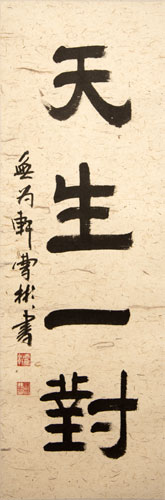 天生一對
無為軒曹彬書